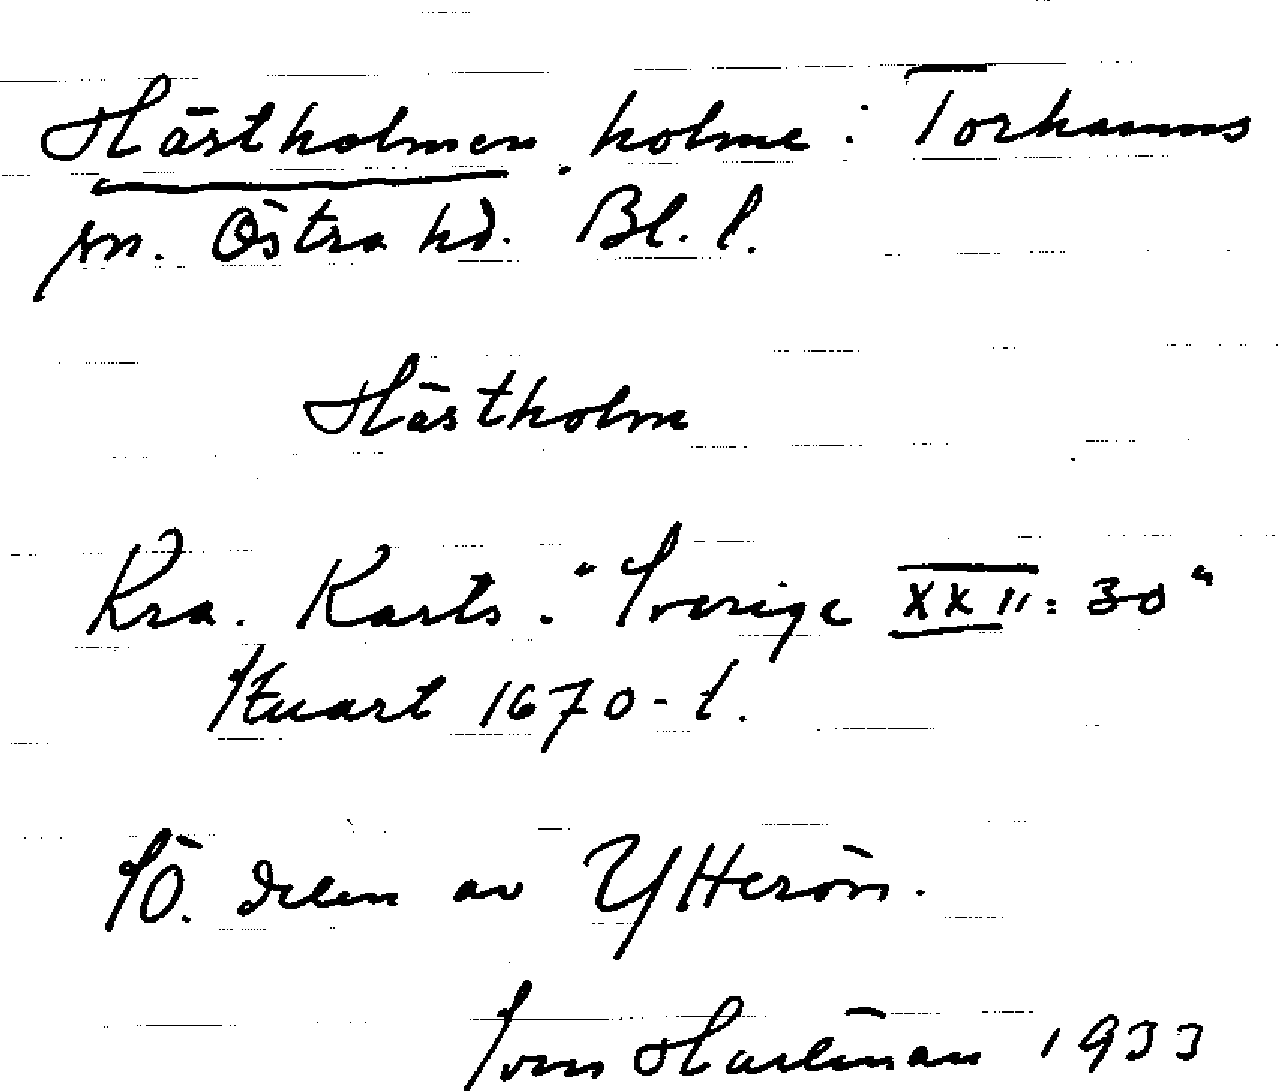 Hästholmen, holme: Torhamns
sn. Östra hd. Bl. l.
Hästholm
Kra. Karts. "Sverige XXII: 30"
Stuart 1670-t.
SÖ. delen av Ytterön.
Sven Hallman 1933